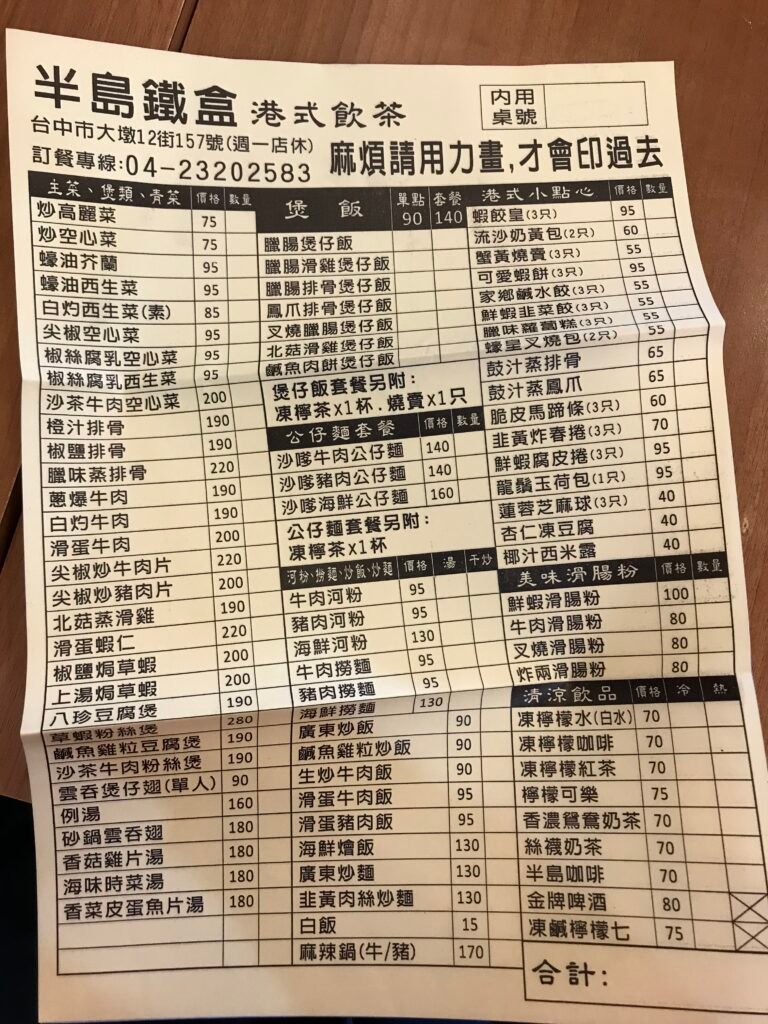 半島鐵盒 港式飲茶
內用
桌號
台中市大墩12街157號(週一店休)
訂餐專線:04-23202583
麻煩請用力畫,才會印過去
主菜、煲類、青菜 價格 數量
炒高麗菜 75
炒空心菜 75
蠔油芥蘭 95
蠔油西生菜 95
白灼西生菜(素) 85
尖椒空心菜 95
椒絲腐乳空心菜 95
椒絲腐乳西生菜 95
沙茶牛肉空心菜 200
橙汁排骨 190
椒鹽排骨 190
臘味蒸排骨 220
蔥爆牛肉 190
白灼牛肉 190
滑蛋牛肉 200
尖椒炒牛肉片 220
尖椒炒豬肉片 200
北菇蒸滑雞 190
滑蛋蝦仁 220
椒鹽焗草蝦 200
上湯焗草蝦 200
八珍豆腐煲 190
草蝦粉絲煲 280
鹹魚雞粒豆腐煲 190
沙茶牛肉粉絲煲 190
雲吞煲仔翅(單人) 90
例湯 160
砂鍋雲吞翅 180
香菇雞片湯 180
海味時菜湯 180
香菜皮蛋魚片湯 180
煲飯 單點 90 套餐 140
臘腸煲仔飯
臘腸滑雞煲仔飯
臘腸排骨煲仔飯
鳳爪排骨煲仔飯
叉燒臘腸煲仔飯
北菇滑雞煲仔飯
鹹魚肉餅煲仔飯
煲仔飯套餐另附:
凍檸茶x1杯.燒賣x1只
公仔麵套餐 價格 數量
沙嗲牛肉公仔麵 140
沙嗲豬肉公仔麵 140
沙嗲海鮮公仔麵 160
公仔麵套餐另附:
凍檸茶x1杯
河粉、撈麵、炒飯、炒麵 價格 湯 干炒
牛肉河粉 95
豬肉河粉 95
海鮮河粉 130
牛肉撈麵 95
豬肉撈麵 95
海鮮撈麵 130
廣東炒飯 90
鹹魚雞粒炒飯 90
生炒牛肉飯 90
滑蛋牛肉飯 95
滑蛋豬肉飯 95
海鮮燴飯 130
廣東炒麵 130
韭黃肉絲炒麵 130
白飯 15
麻辣鍋(牛/豬) 170
港式小點心 價格 數量
蝦餃皇(3只) 95
流沙奶黃包(2只) 60
蟹黃燒賣(3只) 55
可愛蝦餅(3只) 95
家鄉鹹水餃(3只) 55
鮮蝦韭菜餃(3只) 55
臘味蘿蔔糕(3只)
蠔皇叉燒包(2只) 55
鼓汁蒸排骨 65
鼓汁蒸鳳爪 65
脆皮馬蹄條(3只) 60
韭黃炸春捲(3只) 70
鮮蝦腐皮捲(3只) 95
龍鬚玉荷包(1只) 95
蓮蓉芝麻球(3只) 40
杏仁凍豆腐 40
椰汁西米露 40
美味滑腸粉 價格 數量
鮮蝦滑腸粉 100
牛肉滑腸粉 80
叉燒滑腸粉 80
炸兩滑腸粉 80
清涼飲品 價格 冷 熱
凍檸檬水(白水) 70
凍檸檬咖啡 70
凍檸檬紅茶 70
檸檬可樂 75
香濃鴛鴦奶茶 70
絲襪奶茶 70
半島咖啡 70
金牌啤酒 80
凍鹹檸檬七 75
合計: